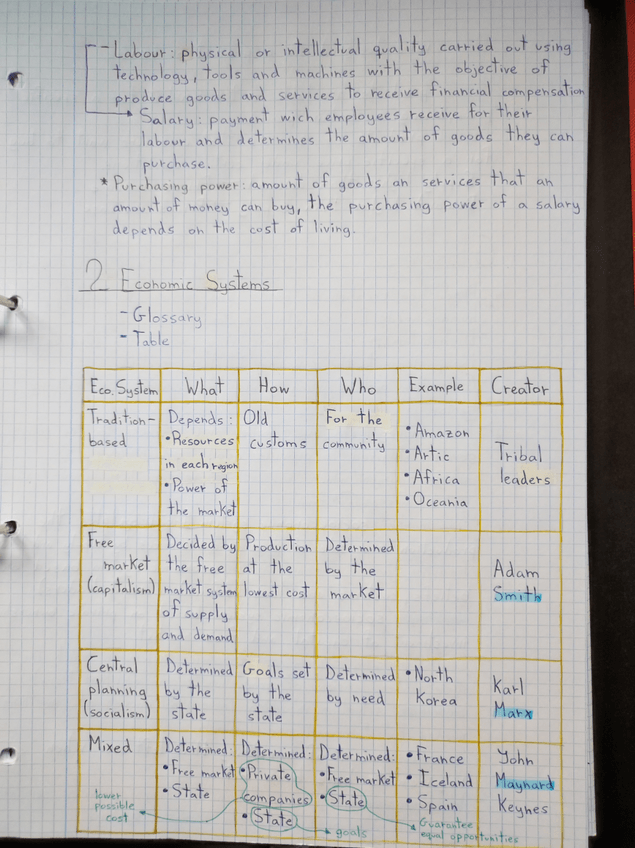 - Labour: physical or intellectual quality carried out using
technology, tools and machines with the objective of
produce goods and services to receive financial compensation
Salary: payment wich employees receive for their
labour and determines the amount of goods they can
purchase.
* Purchasing power: amount of goods an services that an
amount of money can buy, the purchasing power of a salary
depends on the cost of living.
2 Economic Systems
- Glossary
- Table
Eco. System
What
How
Who
Example
Creator
Tradition-
based
Depends:
• Resources
in each region
• Power of
the market
Old
customs
For the
community
• Amazon
• Artic
• Africa
• Oceania
Tribal
leaders
Free
market
(capitalism)
Decided by
the free
market system
of supply
and demand
Production
at the
lowest cost
Determined
by the
market
Adam
Smith
Central
planning
(socialism)
Determined
by the
state
Goals set
by the
state
Determined
by need
• North
Korea
Karl
Marx
Mixed
Determined:
• Free market
• State
Determined:
• Private
companies
• State
Determined:
• Free market
• State
• France
• Iceland
• Spain
John
Maynard
Keynes
lower
possible
cost
goals
Guarantee
equal opportunities